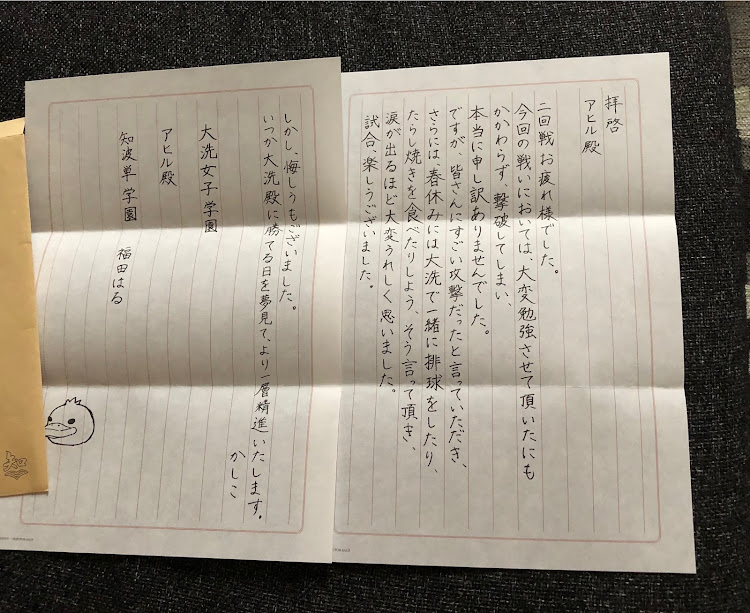 拝啓
アヒル殿
二回戦 お疲れ様でした。
今回の戦いにおいては、大変勉強させて頂いたにも
かかわらず、撃破してしまい、
本当に申し訳ありませんでした。
ですが 皆さんにすごい攻撃だったと言っていただき、
さらには、春休みには大洗で一緒に排球をしたり、
たらし焼きを食べたりしよう、そう言って頂き、
涙が出るほど大変うれしく思いました。
試合、楽しうございました。
しかし、悔しうもございました。
いつか大洗殿に勝てる日を夢見て、より一層精進いたします。
かしこ
大洗女子学園
アヒル殿
知波単学園 福田はる